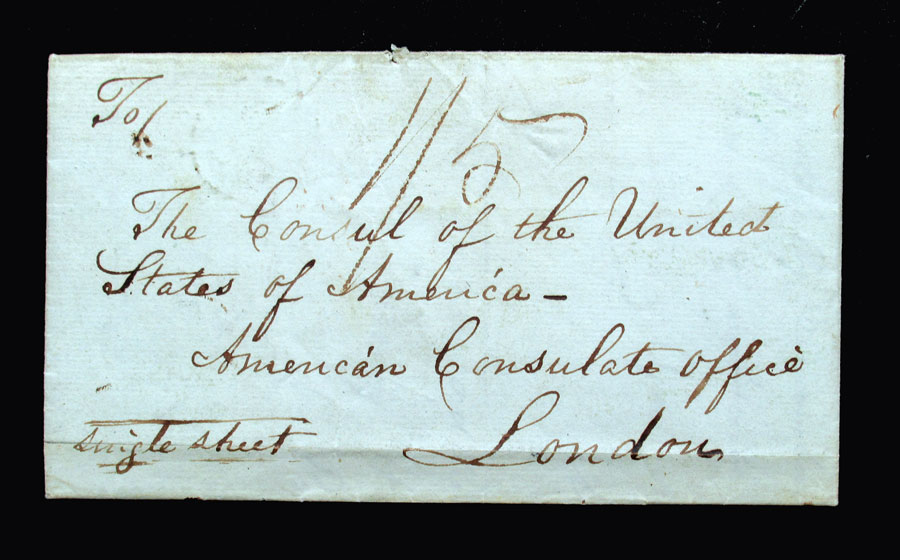 To/
1/5
The Consul of the United
States of America -
American Consulate office
London
single sheet